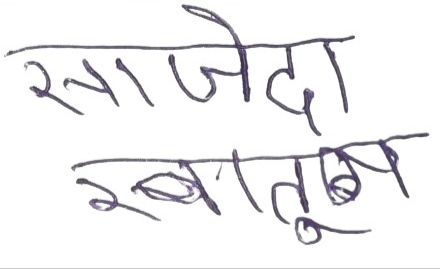 साजेदा
खातून